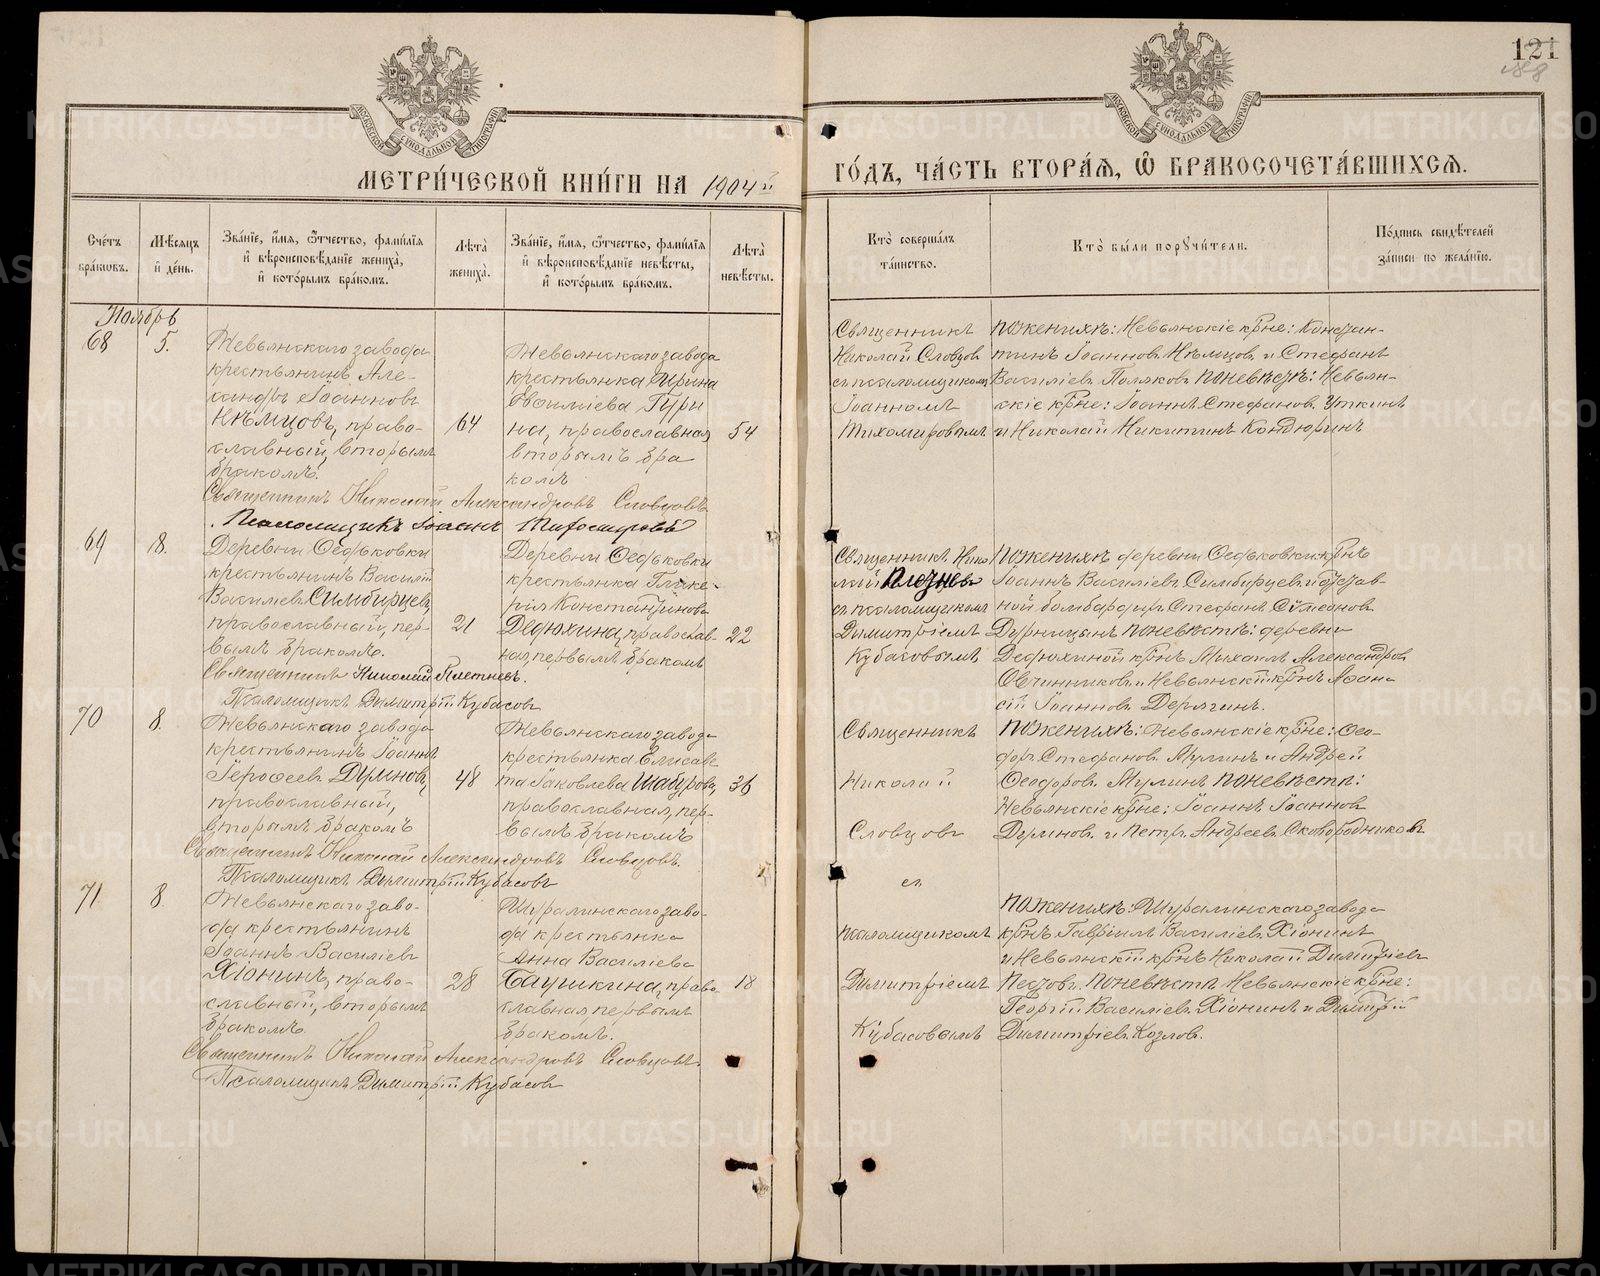 121
188
МОСКОВСКОЙ СУНОДАЛЬНОЙ ТИПОГРАФІИ
МОСКОВСКОЙ СУНОДАЛЬНОЙ ТИПОГРАФІИ
МЕТРИ́ЧЕСКОЙ КНИ́ГИ НА 1904й
ГО́ДЪ, ЧА́СТЬ ВТОРА́Я, Ѿ БРАКОСОЧЕТА́ВШИХСЯ.
Сче́тъ бра́ковъ.
Мѣ́сяцъ и҆ де́нь.
Зва́нїе, и҆́мя, ѻ҆́тчество, фами́лїя и҆ вѣроисповѣ́данїе жениха̀, и҆ кото́рымъ бра́комъ.
Лѣта̀ жениха̀.
Зва́нїе, и҆́мя, ѻ҆́тчество, фами́лїя и҆ вѣроисповѣ́данїе невѣ́сты, и҆ кото́рымъ бра́комъ.
Лѣта̀ невѣ́сты.
Кто̀ соверша́лъ та́инство.
Кто̀ бы́ли порꙋчи́тели.
По́дпись свидѣ́телей за́писи по жела́нїю.
Ноябрь
68
5.
Невьянскаго завода
крестьянинъ Але-
ксандръ Іоанновъ
Нѣмцовъ, право-
славный, вторымъ
бракомъ.
64
Невьянскаго завода
крестьянка Ирина
Василіева Гури
на, православная
вторымъ бра
комъ
54
Священникъ
Николай Словцовъ
съ псаломщикомъ
Іоанномъ
Тихомировымъ
По женихѣ: Невьянскіе кр̃не: Констан-
тинъ Іоанновъ Нѣмцовъ и Стефанъ
Василіевъ Поляковъ По невѣстѣ: Невьян-
скіе кр̃не: Іоаннъ Стефановъ Уткинъ
и Николай Никитинъ Кондюринъ
Священникъ Николай Александровъ Словцовъ
Псаломщикъ Іоаннъ Тихомировъ
69
8.
Деревни Ѳедьковки
крестьянинъ Василій
Василіевъ Симбирцевъ,
православный, пер-
вымъ бракомъ.
21
Деревни Ѳедьковки
крестьянка Глике-
рія Константинова
Дедюхина, православ-
ная, первымъ бракомъ
22
Священникъ Нико-
лай Плетневъ
съ псаломщикомъ
Димитріемъ
Кубасовымъ
По женихѣ деревни Ѳедьковки кр̃нъ
Іоаннъ Василіевъ Симбирцевъ и отстав-
ной бомбардиръ Стефанъ Сѵмеоновъ
Дурницынъ По невѣстѣ: деревни
Дедюхиной кр̃нъ Михаилъ Александровъ
Овчинниковъ и Невьянскій кр̃нъ Аѳана-
сій Іоанновъ Дерягинъ.
Священникъ Николай Плетневъ.
Псаломщикъ Димитрій Кубасовъ
70
8.
Невьянскаго завода
крестьянинъ Іоаннъ
Іероѳеевъ Дуриновъ,
православный,
вторымъ бракомъ
48
Невьянскаго завода
крестьянка Елисаве
та Іаковлева Шабурова,
православная, пер-
вымъ бракомъ
36
Священникъ
Николай
Словцовъ
съ
псаломщикомъ
Димитріемъ
Кубасовымъ
По женихѣ: Невьянскіе кр̃не: Ѳео-
доръ Стефановъ Мулинъ и Андрей
Ѳеодоровъ Мулинъ По невѣстѣ:
Невьянскіе кр̃не: Іоаннъ Іоанновъ
Дуриновъ и Петръ Андреевъ Сковородниковъ
Священникъ Николай Александровъ Словцовъ.
Псаломщикъ Димитрій Кубасовъ
71
8.
Невьянскаго заво-
да крестьянинъ
Іоаннъ Василіевъ
Хіонинъ, право-
славный, вторымъ
бракомъ.
28
Шуралинскаго заво-
да крестьянка
Анна Василіева
Баушкина, право
славная первымъ
бракомъ.
18
По женихѣ: Шуралинскаго завода
кр̃нъ Гавріилъ Василіевъ Хіонинъ
и Невьянскій кр̃нъ Николай Димитріевъ
Пестовъ. По невѣстѣ Невьянскіе кр̃не:
Георгій Василіевъ Хіонинъ и Димитрій
Димитріевъ Козловъ.
Священникъ Николай Александровъ Словцовъ.
Псаломщикъ Димитрій Кубасовъ
METRIKI.GASO-URAL.RU